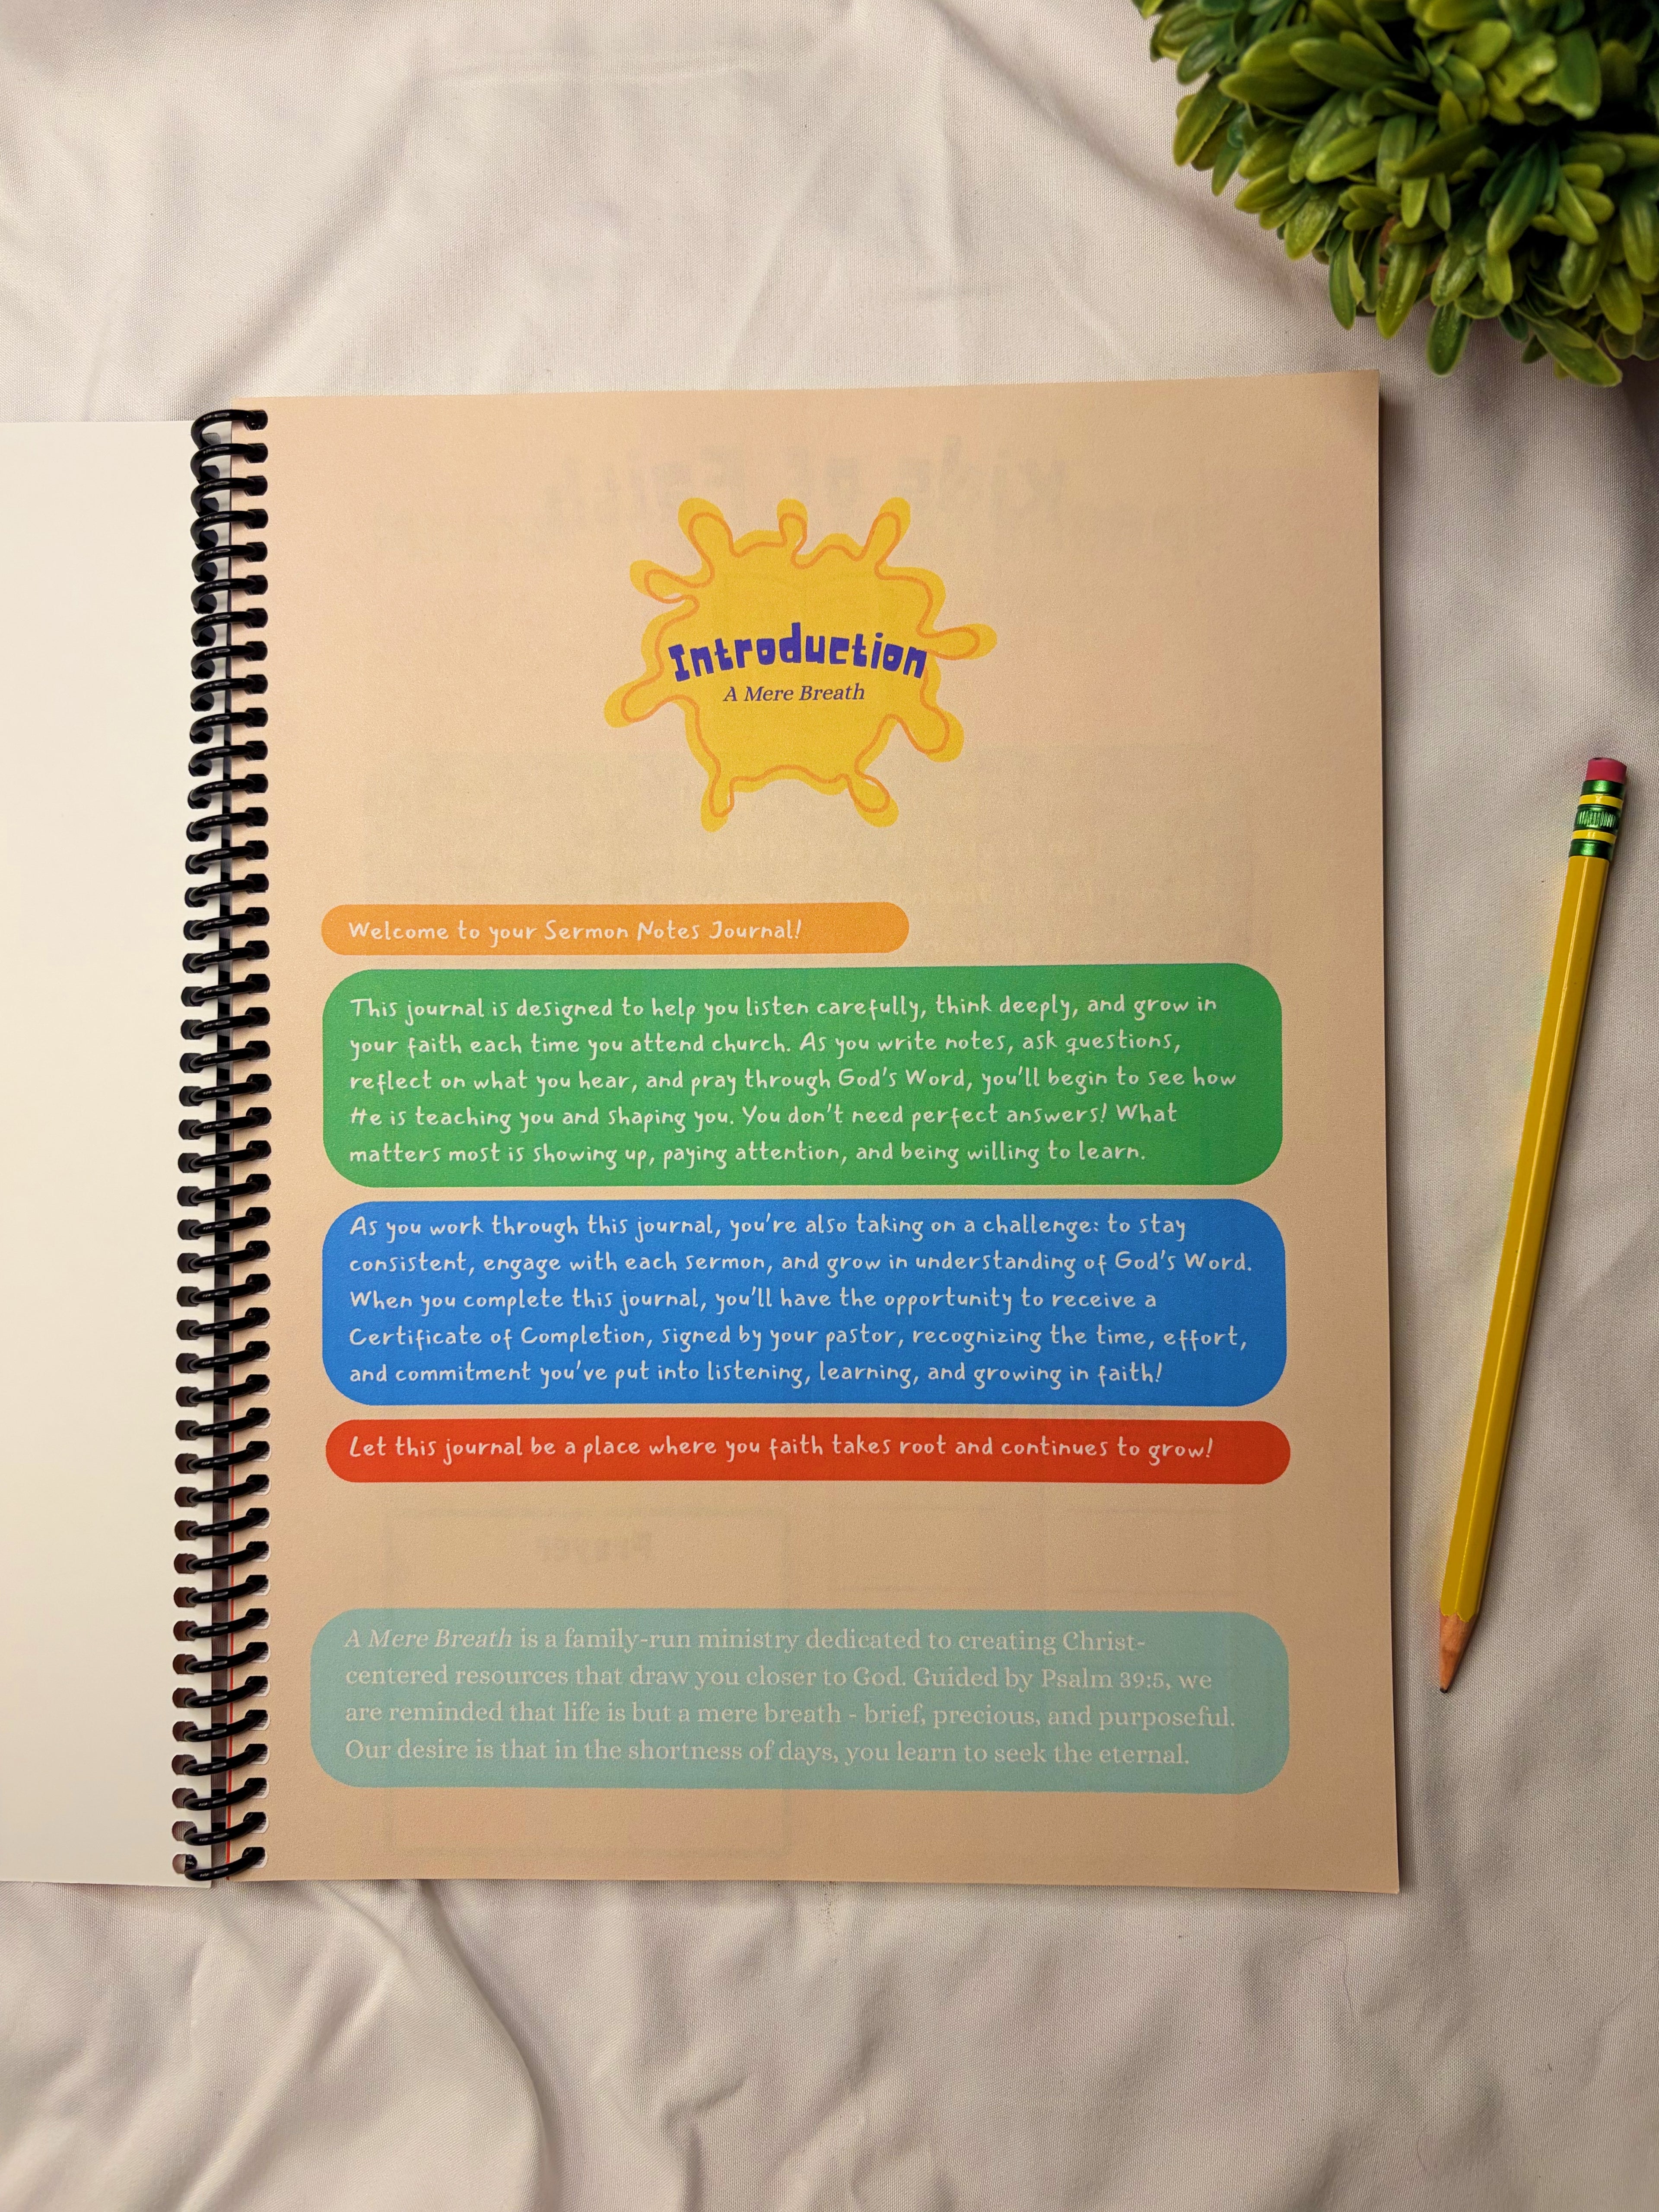 Introduction
A Mere Breath
Welcome to your Sermon Notes Journal!
This journal is designed to help you listen carefully, think deeply, and grow in
your faith each time you attend church. As you write notes, ask questions,
reflect on what you hear, and pray through God's Word, you'll begin to see how
He is teaching you and shaping you. You don't need perfect answers! What
matters most is showing up, paying attention, and being willing to learn.
As you work through this journal, you're also taking on a challenge: to stay
consistent, engage with each sermon, and grow in understanding of God's Word.
When you complete this journal, you'll have the opportunity to receive a
Certificate of Completion, signed by your pastor, recognizing the time, effort,
and commitment you've put into listening, learning, and growing in faith!
Let this journal be a place where you faith takes root and continues to grow!
A Mere Breath is a family-run ministry dedicated to creating Christ-
centered resources that draw you closer to God. Guided by Psalm 39:5, we
are reminded that life is but a mere breath - brief, precious, and purposeful.
Our desire is that in the shortness of days, you learn to seek the eternal.